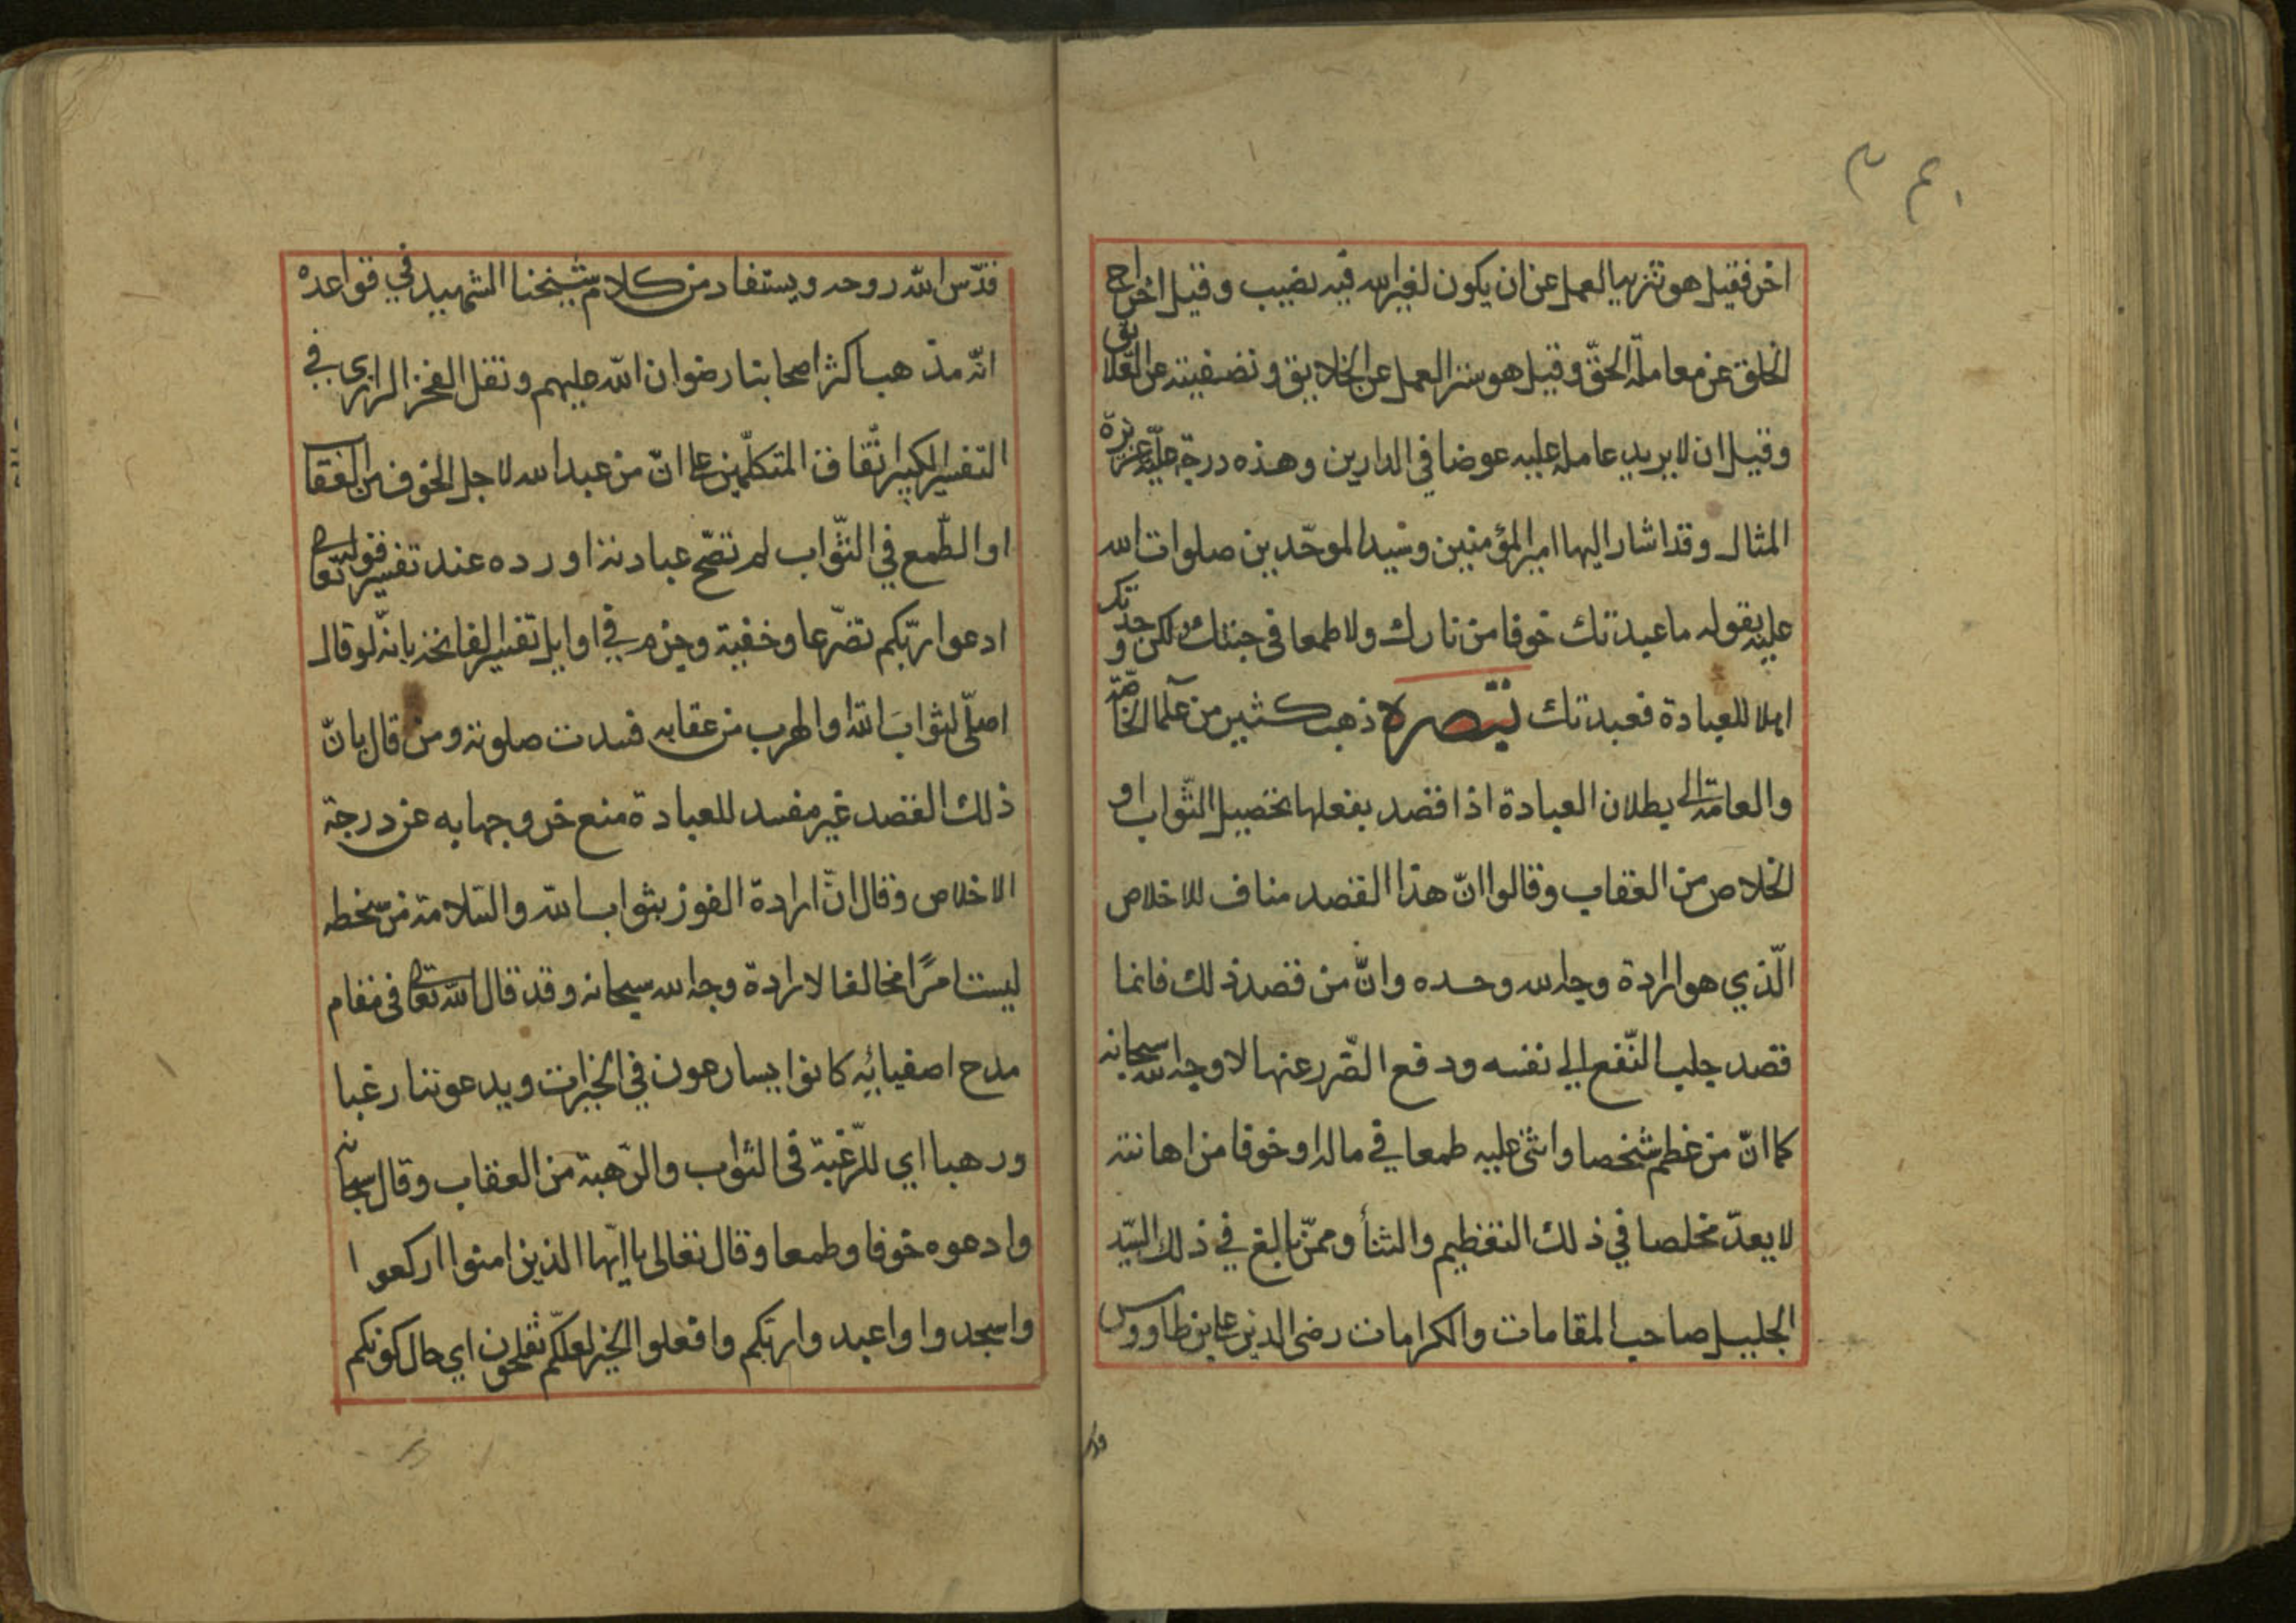 اخر فقيل هو تنزيه العمل عن ان يكون لغير الله فيه نصيب وقيل اخراج
الخلق عن معاملة الحقّ وقيل هو ستر العمل عن الخلايق وتصفيته عن العلايق
وقيل ان لا يريد عامله عليه عوضا في الدارين وهذه درجة عليّة عزيزة
المثال وقد اشار اليها امير المؤمنين وسيد الموحّدين صلوات الله
عليه بقوله ما عبدتك خوفا من نارك ولا طمعا في جنتك ولكن وجدتك
اهلا للعبادة فعبدتك تبصرة ذهب كثير من علما الخاصّة
والعامّة الى بطلان العبادة اذا قصد بفعلها تحصيل الثّواب او
الخلاص من العقاب وقالوا انّ هذا القصد مناف للاخلاص
الّذي هو ارادة وجه الله وحده وانّ من قصد ذلك فانما
قصد جلب النّفع الي نفسه ودفع الضّرر عنها لا وجه الله سبحانه
كما انّ من عظم شخصا واثنى عليه طمعا في ماله او خوفا من اهانته
لا يعدّ مخلصا في ذلك التعظيم والثنأ وممّن بالغ في ذلك السّيد
الجليل صاحب المقامات والكرامات رضى الدين على بن طاووس
قدّس الله روحه ويستفاد من كلام شيخنا الشهيد في قواعده
انّه مذهب اكثر اصحابنا رضوان الله عليهم ونقل الفخر الرازي في
التفسير الكبير اتّفاق المتكلّمين على انّ من عبد الله لاجل الخوف من العقاب
او الطّمع في الثّواب لم تصّح عبادته اورده عند تفسير قوله تعالى
ادعوا ربّكم تضّرعا وخفية وجزم في اوايل تفسير الفاتحة بانّه لو قال
اصلّى لثوابَ الله او الهرب من عقابه فسدت صلوته ومن قال بانّ
ذلك القصد غير مفسد للعبادة منع خروجها به عن درجة
الاخلاص وقال انّ ارادة الفوز بثواب الله والسّلامة من سخطه
ليست امرًا مخالفا لارادة وجه الله سبحانه وقد قال الله تعالى فى مقام
مدح اصفيائه كانوا يسارعون في الخيرات ويدعوننا رغبا
ورهبا اي للرّغبة فى الثواب والرّهبة من العقاب وقال سبحانه
وادعوه خوفا وطمعا وقال تعالى يا ايّها الذين امنوا اركعوا
واسجدوا واعبدوا ربّكم وافعلوا الخير لعلّكم تفلحون اي حال كونكم